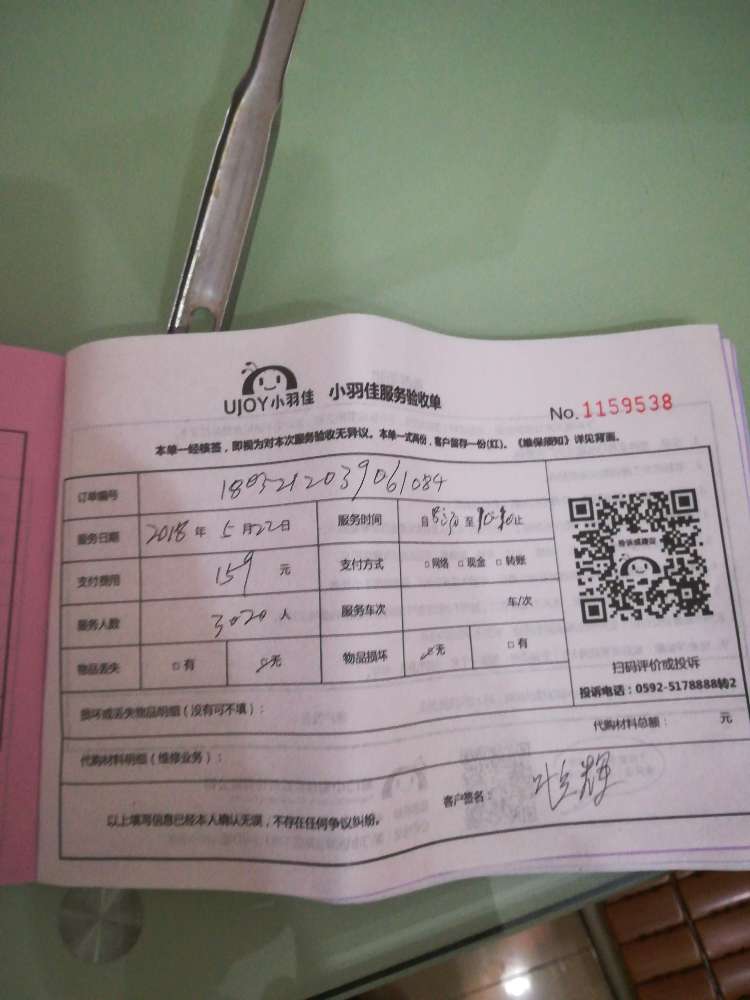 UJOY小羽佳 小羽佳服务验收单
No.1159538
本单一经核签，即视为对本次服务验收无异议。本单一式两份，客户留存一份(红)。《维保须知》详见背面。
订单编号 1805212039061084
服务日期 2018年5月22日 服务时间 自8:30至10:30止
支付费用 159元 支付方式 □网络 □现金 □转账
服务人数 3020人 服务车次 车/次
物品丢失 □有 □无 物品损坏 □无 □有
投诉或建议
扫码评价或投诉
投诉电话：0592-5178888转2
损坏或丢失物品明细（没有可不填）：
代购材料明细（维修业务）： 代购材料总额： 元
以上填写信息已经本人确认无误，不存在任何争议纠纷。 客户签名：